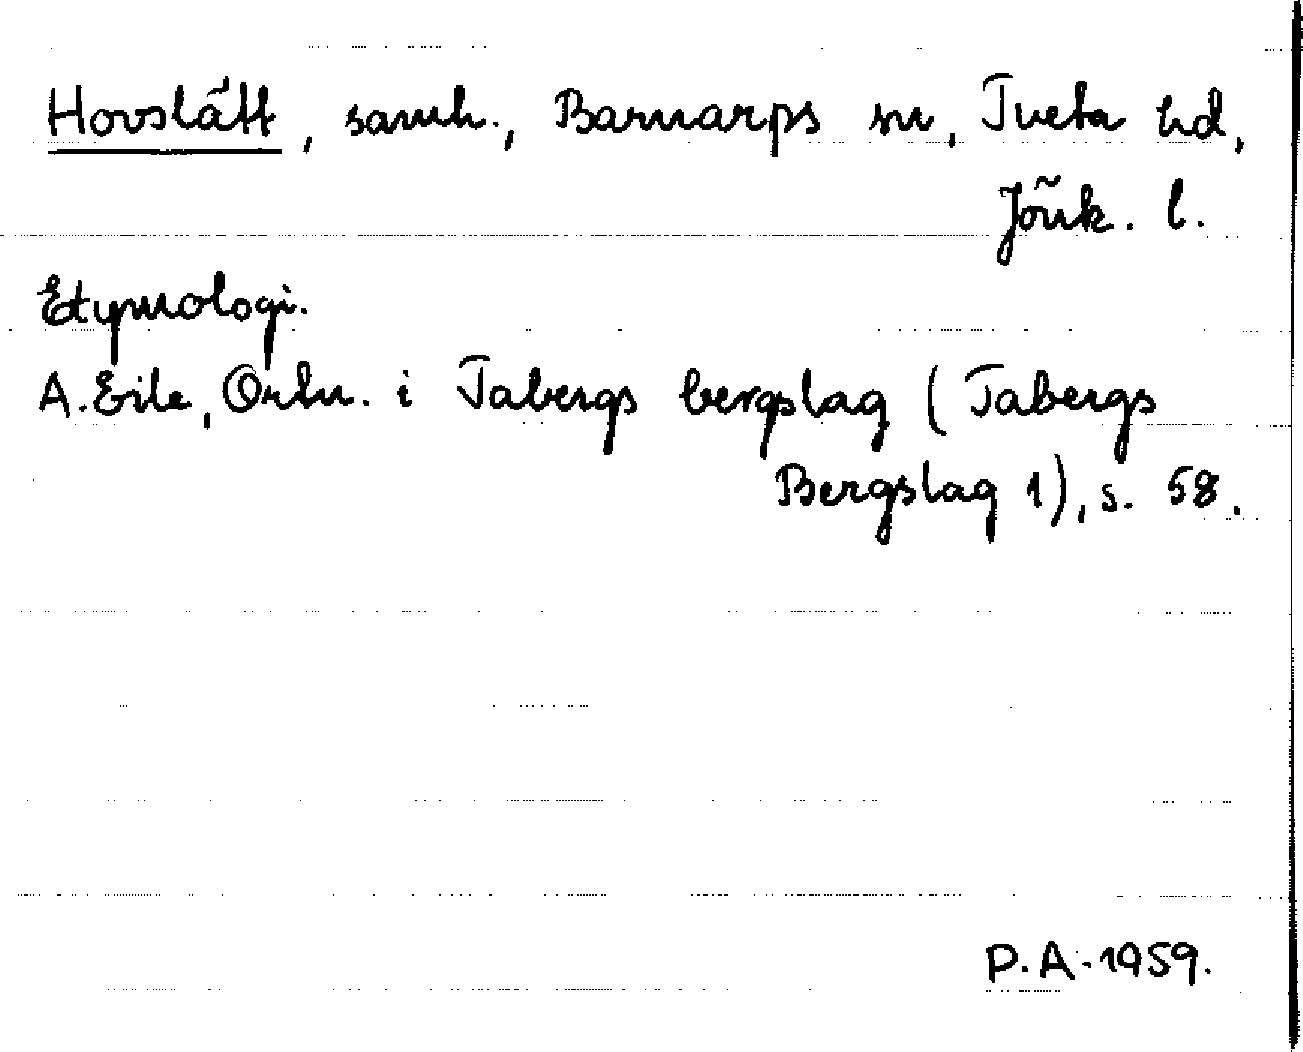 Hovslätt, samh., Barnarps sn, Tveta hd,
Jönk. l.
Etymologi.
A. Eile, Ortn. i Tabergs bergslag (Tabergs
Bergslag 1), s. 58.
P.A. 1959.